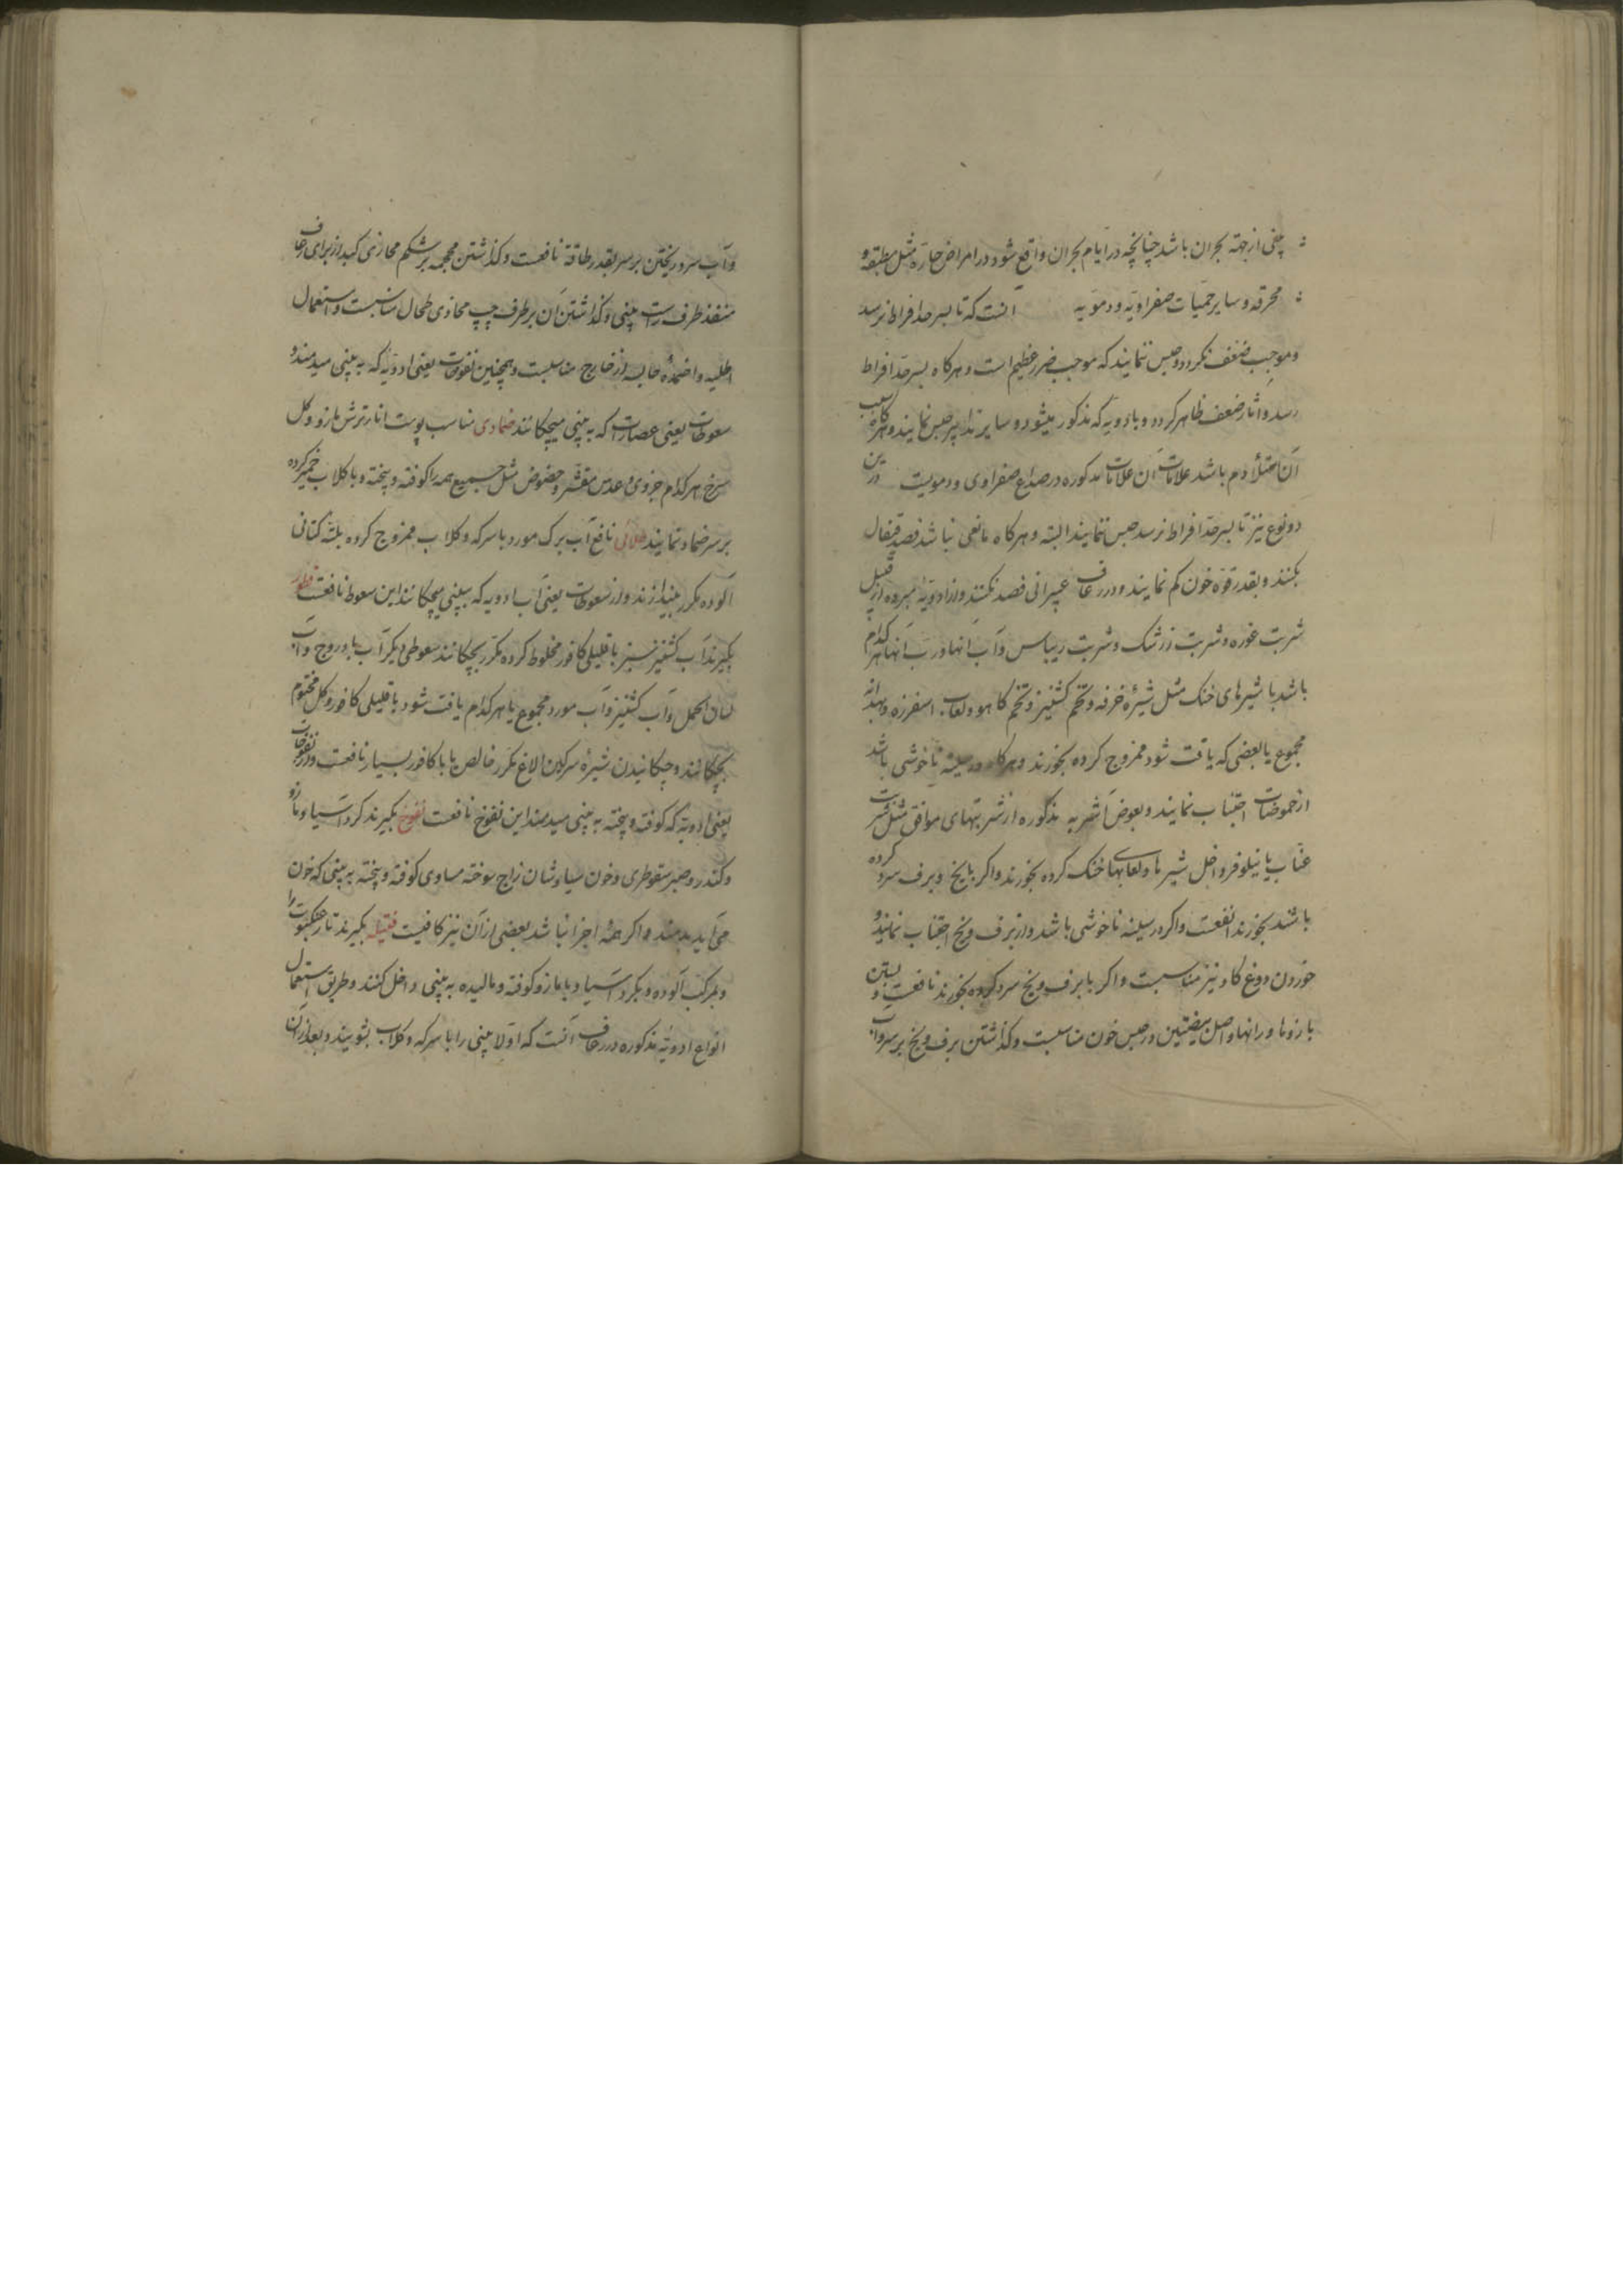 بینی از جهة بحران باشد چنانچه در ایام بحران واقع شود در امراض حاره مثل مطبقه و
محرقه و سایر حمیات صفراویه و دمویه آنست که تا بسر حد افراط نرسد
و موجب ضعف نکردد حبس ننمایند که موجب ضرر عظیم است و هرکاه بسر حد افراط
رسد و اثار ضعف ظاهر کردد و بادویه که مذکور میشود و سایر تدابیر حبس نمایند و هرکاه سبب
آن امتلأ دم باشد علامات آن علامات مذکوره در صداع صفراوی و دمویست درین
دو نوع نیز تا بسر حد افراط نرسد حبس ننمایند البته و هرکاه مانعی نباشد فصد قیفال
بکنند و بقدر قوة خون کم نمایند و در رعاف بحرانی فصد نکنند و از ادویه مبرده از قبیل
شربت غوره و شربت زرشک و شربت ریباس و آب انها و رب انها هر کدام
باشد با شیرهای خنک مثل شیرهٔ خرفه و تخم کشنیز و تخم کاهو و لعاب اسفرزه و بهدانه
مجموع یا بعضی که یافت شود ممزوج کرده بخورند و هرکاه در سینه ناخوشی باشد
از حموضات اجتناب نمایند و بعوض اشربه مذکوره از شربتهای موافق مثل شربت
عناب یا نیلوفر داخل شیرها و لعابهاء خنک کرده بخورند و اکر با یخ و برف سرد کرده
باشند بخورند انفعست و اکر در سینه ناخوشی باشد و از برف و یخ اجتناب نمایند و
خوردن دوغ کاو نیز مناسبست و اکر با برف و یخ سرد کرده بخورند نافعست و بستن
بازوها و رانها و اصل بیضتین در حبس خون مناسبست و کذاشتن برف و یخ بر سر و آب
و آب سرد ریختن بر سر بقدر طاقة نافعست و کذاشتن محجمه بر شکم محاذی کبد از برای رعاف
منفذ طرف راست بینی و کذاشتن آن بر طرف چپ محاذی طحال مناسبست و استعمال
اطلیه و اضمدهٔ حابسه از خارج مناسبست و همچنین نفوخات یعنی ادویه که به بینی میدمند و
سعوطات یعنی عصارات که به بینی میچکانند ضمادی مناسب پوست انار ترش مازو و کل
سرخ هر کدام جزوی و عدس مقشر و حضض مثل جمیع همه را کوفته و بیخته و با کلاب خمیر کرده
بر سر ضماد نمایند طلائی نافع آب برک مورد با سرکه و کلاب ممزوج کرده بلتهٔ کتانی
آلوده مکرر بیندازند و از سعوطات یعنی آب ادویه که ببینی میچکانند این سعوط نافعست قطور
بکیرند آب کشنیز سبز با قلیلی کافور مخلوط کرده مکرر بچکانند سعوطی دیکر آب بادروج و آب
لسان الحمل و آب کشنیز و آب مورد مجموع یا هر کدام یافت شود با قلیلی کافور و کل مختوم
بچکانند و چکانیدن شیرهٔ سرکین الاغ مکرر خالص یا با کافور بسیار نافعست و از نفوخات
یعنی ادویه که کوفته و بیخته به بینی میدمند این نفوخ نافعست نفوخ بکیرند کرد آسیا و مازو
و کندر و صبر سقوطری و خون سیاوشان زاج سوخته مساوی کوفته و بیخته به بینی که خون
می آید بدمند و اکر همهٔ اجزا نباشد بعضی از آن نیز کافیست فتیله بکیرند تار عنکبوت را
و بمرکب آلوده و بکرد آسیا و یا بمازو کوفته و مالیده به بینی داخل کنند و طریق استعمال
انواع ادویهٔ مذکوره در رعاف آنست که اولا بینی را با سرکه و کلاب بشویند و بعد از آن